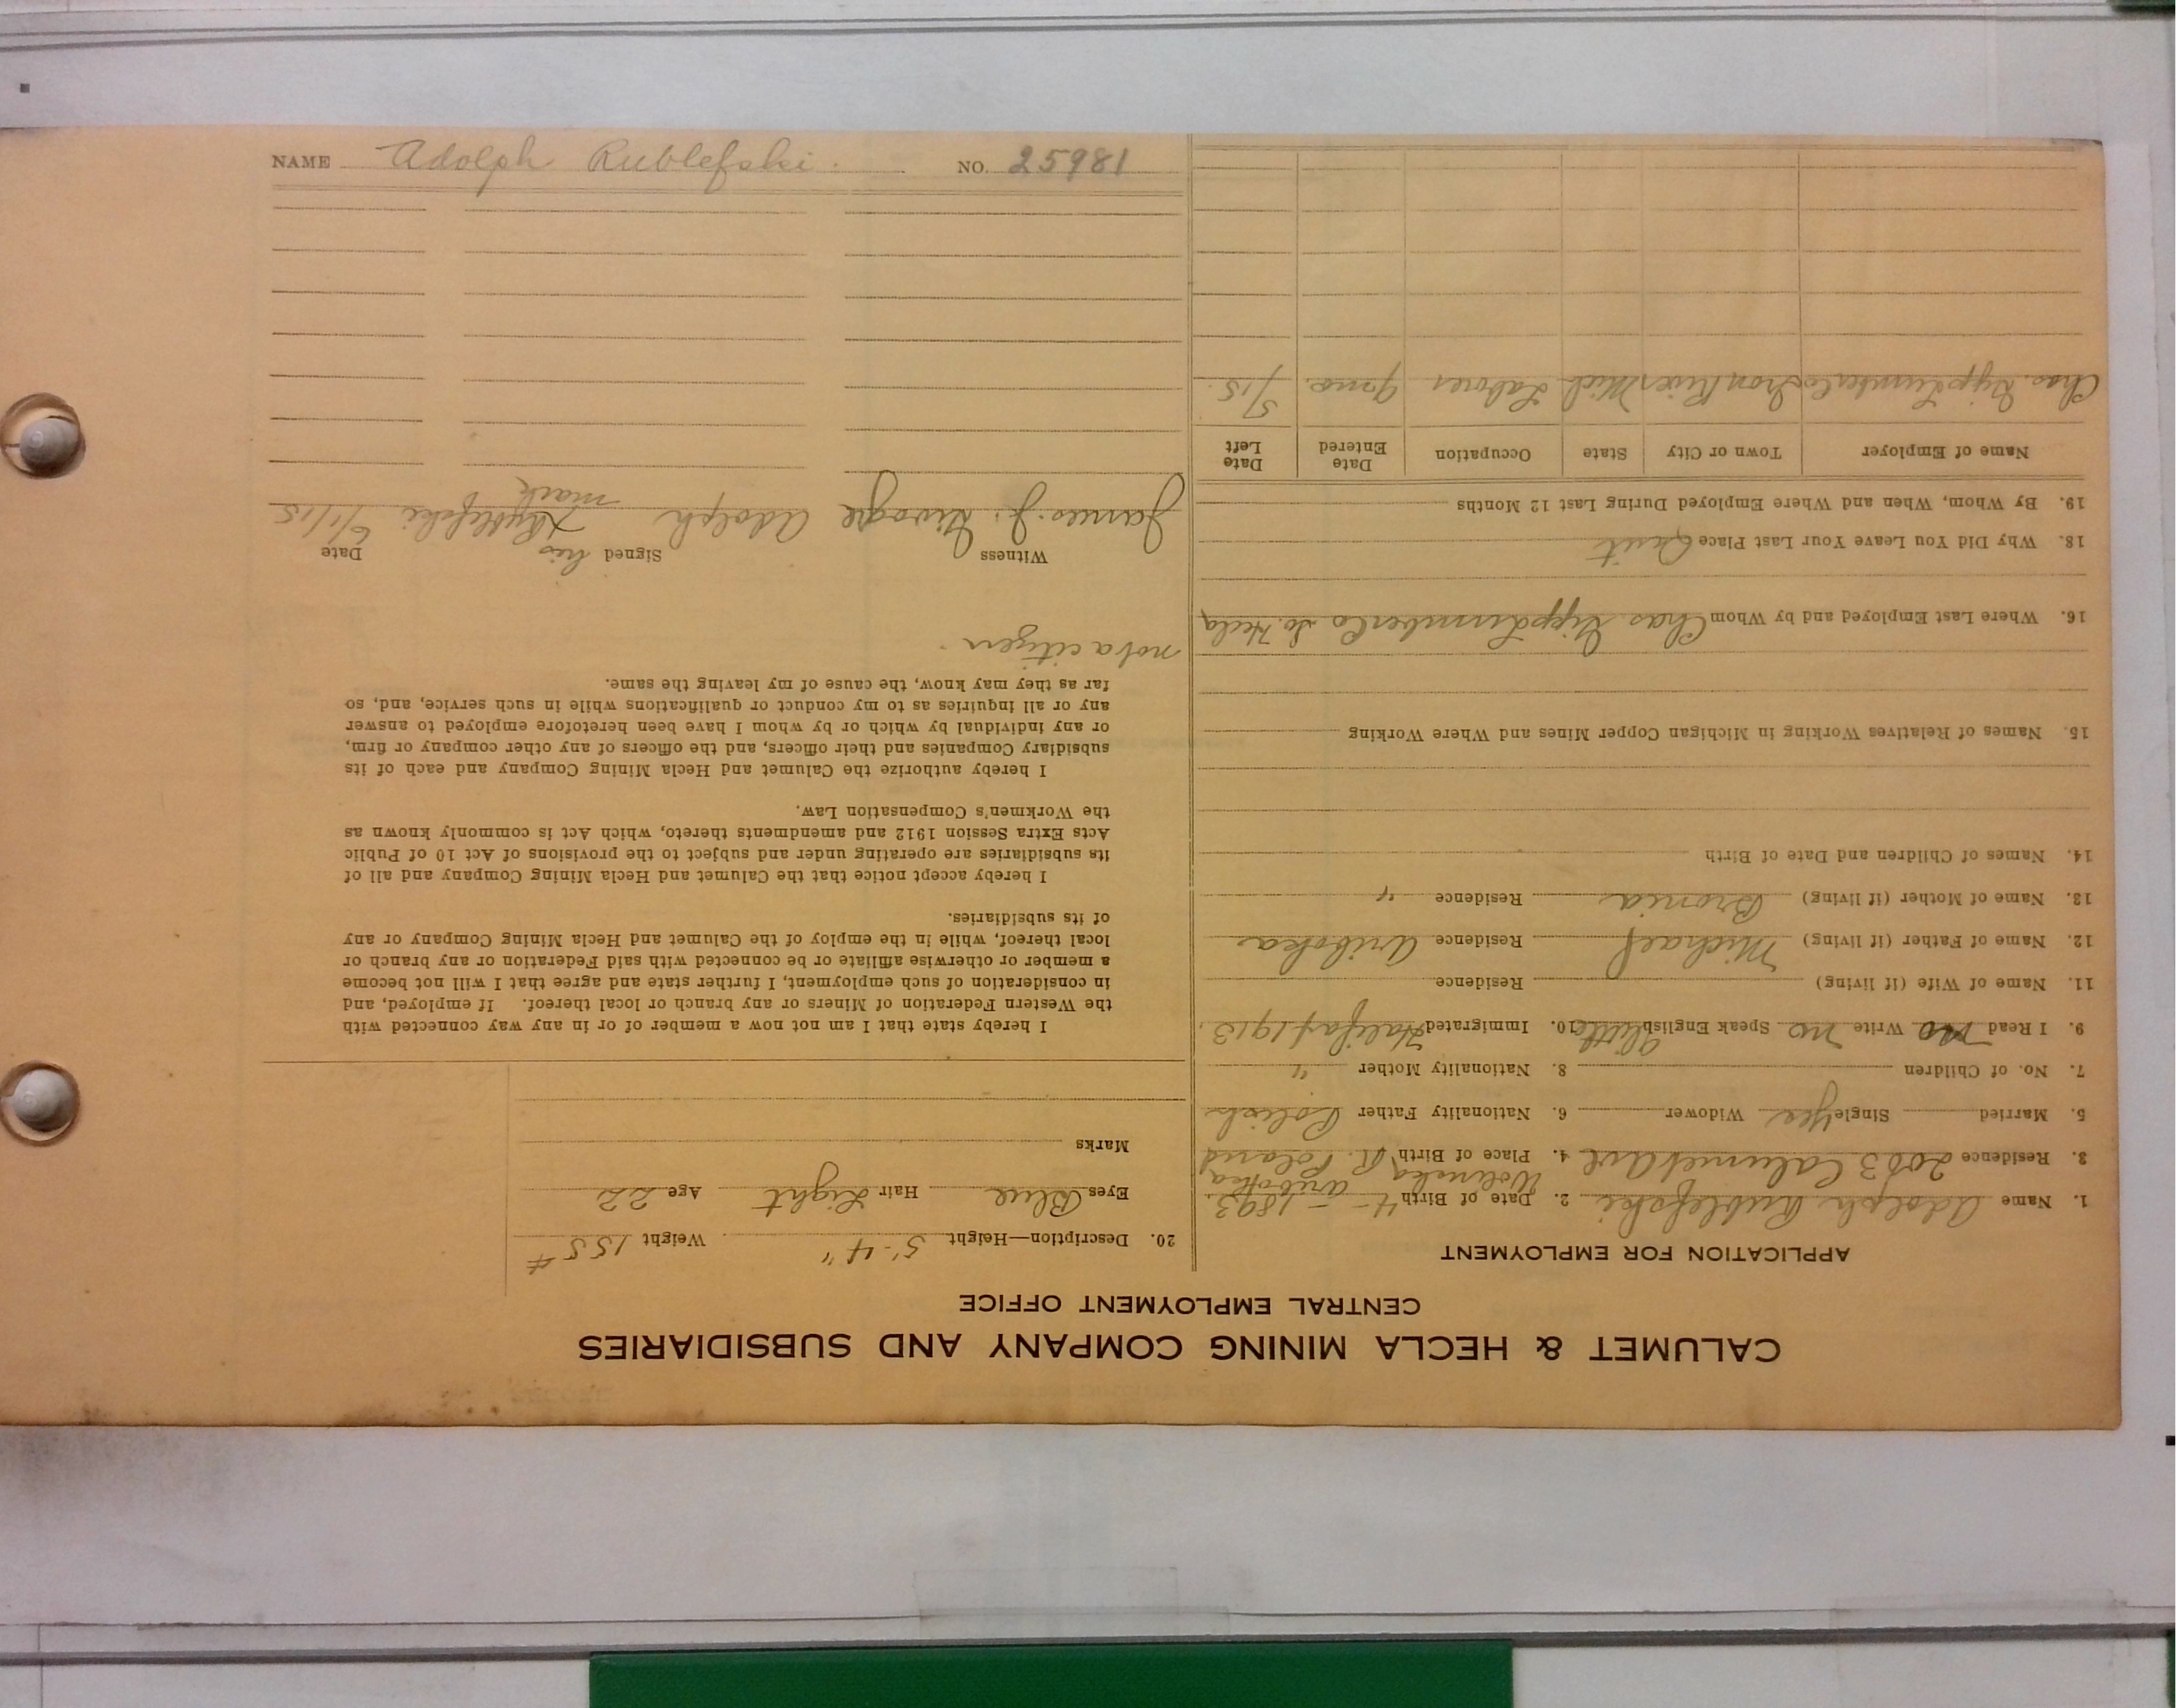 CALUMET & HECLA MINING COMPANY AND SUBSIDIARIES
CENTRAL EMPLOYMENT OFFICE
APPLICATION FOR EMPLOYMENT
1. Name Adolph Rublefski 2. Date of Birth 4 - - 1893
Wolinska Aribotka
3. Residence 2003 Calumet Ave 4. Place of Birth R. Poland
5. Married Single Yes Widower 6. Nationality Father Polish
7. No. of Children 8. Nationality Mother "
9. I Read No Write No Speak English Little 10. Immigrated Halifax 1913
11. Name of Wife (if living) Residence
12. Name of Father (if living) Michael Residence Aribotka
13. Name of Mother (if living) Bronia Residence "
14. Names of Children and Date of Birth
15. Names of Relatives Working in Michigan Copper Mines and Where Working
16. Where Last Employed and by Whom Chas. Lumber Co So. Hecla
18. Why Did You Leave Your Last Place Quit
19. By Whom, When and Where Employed During Last 12 Months
Name of Employer Town or City State Occupation Date Entered Date Left
Chas. Lumber Co Iron River Mich Laborer 9 mos. 5/15.
20. Description—Height 5'-4" Weight 155 #
Eyes Blue Hair Light Age 22
Marks
I hereby state that I am not now a member of or in any way connected with
the Western Federation of Miners or any branch or local thereof. If employed, and
in consideration of such employment, I further state and agree that I will not become
a member or otherwise affiliate or be connected with said Federation or any branch or
local thereof, while in the employ of the Calumet and Hecla Mining Company or any
of its subsidiaries.
I hereby accept notice that the Calumet and Hecla Mining Company and all of
its subsidiaries are operating under and subject to the provisions of Act 10 of Public
Acts Extra Session 1912 and amendments thereto, which Act is commonly known as
the Workmen's Compensation Law.
I hereby authorize the Calumet and Hecla Mining Company and each of its
subsidiary Companies and their officers, and the officers of any other company or firm,
or any individual by which or by whom I have been heretofore employed to answer
any or all inquiries as to my conduct or qualifications while in such service, and, so
far as they may know, the cause of my leaving the same.
not a citizen.
Witness Signed his Date
James J. Adolph X Rublefski 6/1/15
mark
NAME Adolph Rublefski. NO. 25981